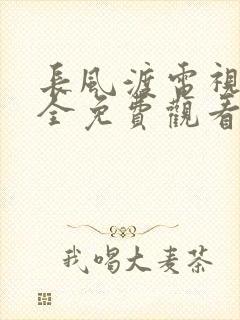 長風渡電視
全免費觀看
我喝大麦茶